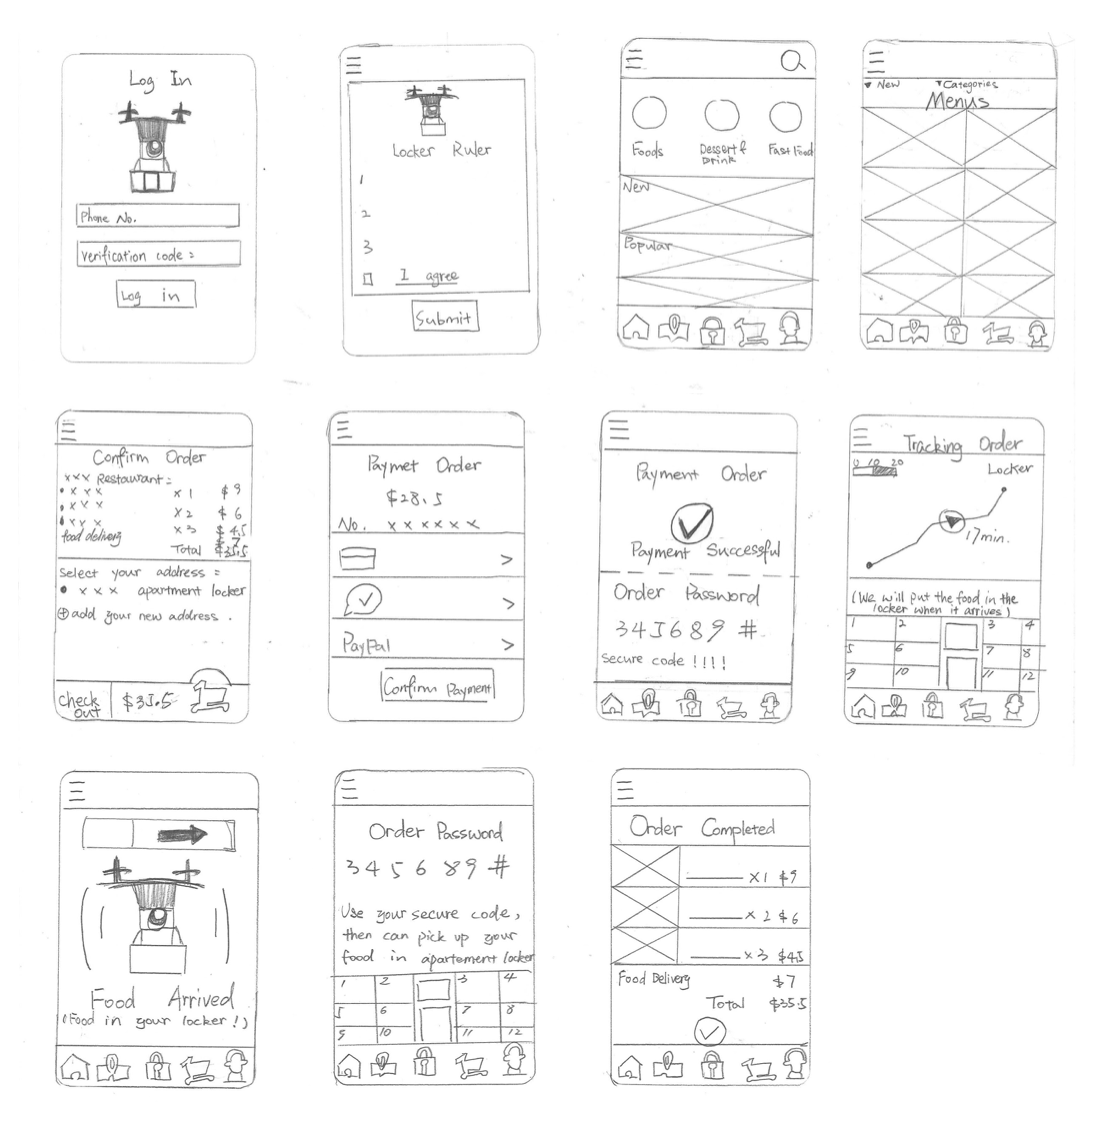 Log In
Phone No.
Verification code :
Log in
Locker Ruler
1
2
3
I agree
Submit
Foods
Dessert & Drink
Fast Food
New
Popular
New
Categories
Menus
Confirm Order
x x x Restaurant :
x x x x 1 $ 9
x x x x 2 $ 6
x x x x 3 $ 4.5
food delivery 7
Total $35.5
Select your address :
x x x apartment locker
add your new address .
Check Out $35.5
Paymet Order
$28.5
No. x x x x x x
PayPal
Confirm Payment
Payment Order
Payment Successful
Order Password
345689 #
Secure code !!!!
Tracking Order
0 10 20
Locker
17min.
(We will put the food in the
locker when it arrives)
1 2 3 4
5 6 7 8
9 10 11 12
Food Arrived
(Food in your locker!)
Order Password
345689 #
Use your secure code,
then can pick up your
food in apartement locker
1 2 3 4
5 6 7 8
9 10 11 12
Order Completed
x1 $9
x 2 $6
x 3 $4.5
Food Delivery $7
Total $35.5